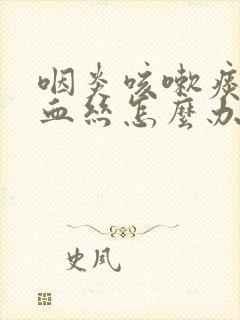 咽炎咳嗽痰
血丝怎麽办
史凤